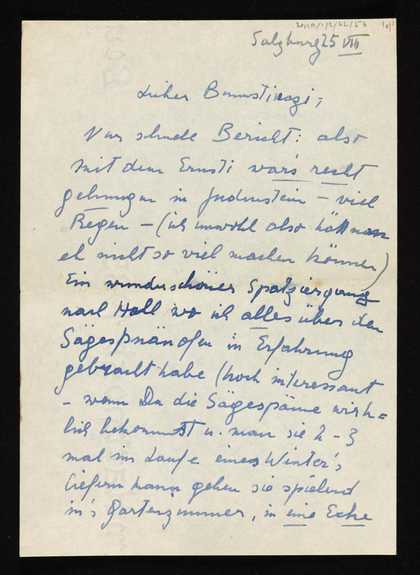 Salzburg 25 VIII
Lieber
Nur schnelle Bericht: also
mit dem Ernsti war's recht
gelungen in Judenstein – viel
Regen – (ich unwohl also hätt man
eh nicht so viel machen können)
Ein wunderschöner Spatziergang
nach Hall wo ich alles über den
Sägespänofen in Erfahrung
gebracht habe (hoch interessant
– wenn Du die Sägespäne wirk=
lich bekommst u. man sie 2–3
mal im Laufe eines Winter's
liefern kann gehen sie spielend
in's Gartenzimmer, in eine Ecke